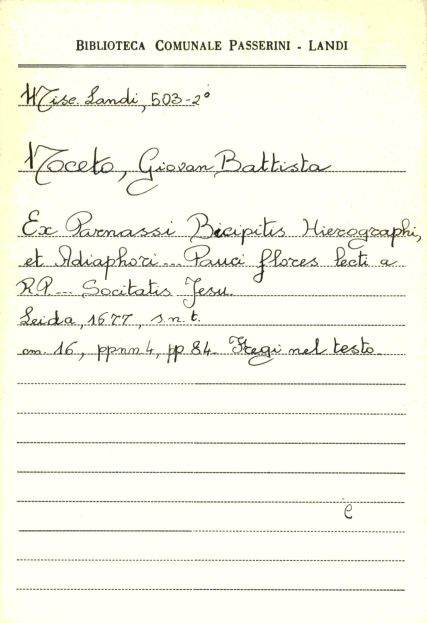 BIBLIOTECA COMUNALE PASSERINI - LANDI
Misc. Landi, 503-2°
Noceto, Giovan Battista
Ex Parnassi Bicipitis Hierographi,
et Adiaphori... Pauci flores lecti a
R.P... Socitatis Jesu.
Leida, 1677, s.n.t.
cm. 16, ppnn 4, pp 84. Fregi nel testo.
e